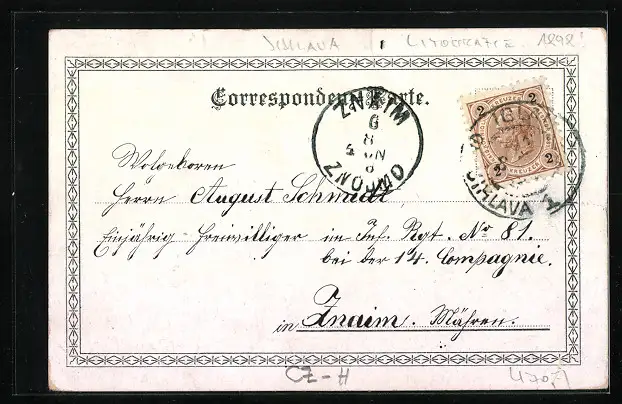 JIHLAVA LITOGRAFIE 1898
Correspondenz-Karte.
ZNAIM
ZNOJMO
2 KREUZER 2
2 2
IGLAU
JIHLAVA 1
Wolgeboren
Herrn August Schmidt,
Einjährig-Freiwilliger im Inf. Rgt. No 81.
bei der 14. Compagnie.
in Znaim. Mähren.
CZ-H